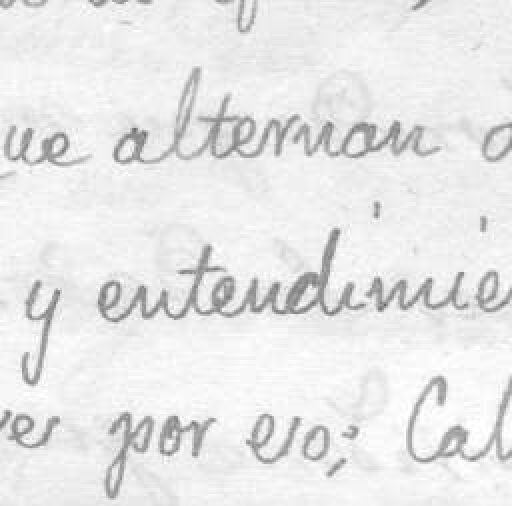 que alternan
y entendimie
por eso; Cal